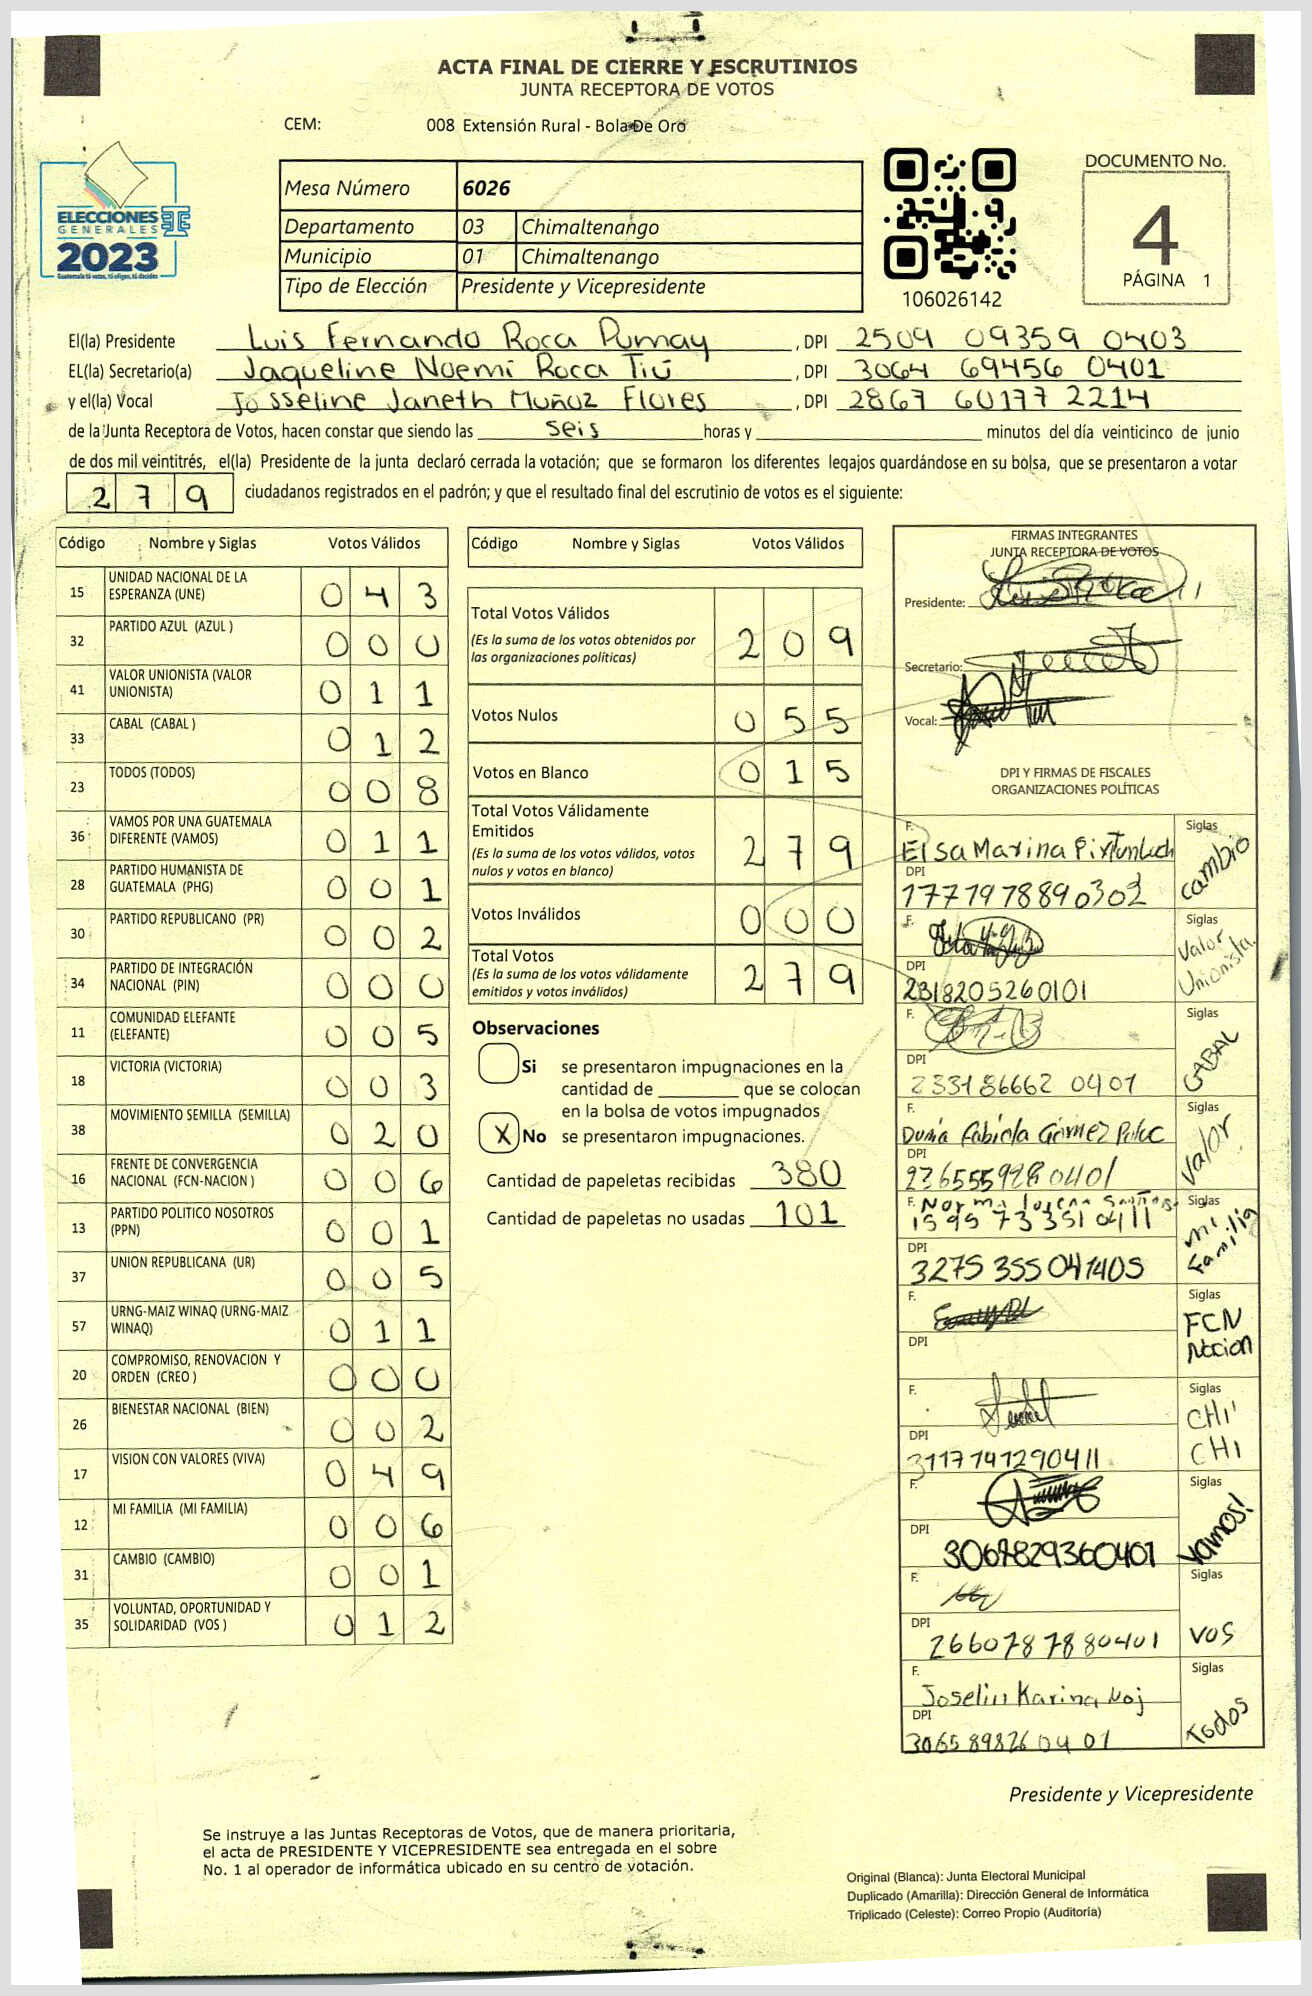 ACTA FINAL DE CIERRE Y ESCRUTINIOS
JUNTA RECEPTORA DE VOTOS
CEM: 008 Extensión Rural - Bola De Oro
ELECCIONES
GENERALES
2023
Guatemala tú votas, tú eliges, tú decides
Mesa Número 6026
Departamento 03 Chimaltenango
Municipio 01 Chimaltenango
Tipo de Elección Presidente y Vicepresidente
106026142
DOCUMENTO No.
4
PÁGINA 1
El(la) Presidente Luis Fernando Roca Pumay, DPI 2509 09359 0403
EL(la) Secretario(a) Jaqueline Noemí Roca Tiú, DPI 3064 69456 0401
y el(la) Vocal Josseline Janeth Muñoz Flores, DPI 2867 60177 2214
de la Junta Receptora de Votos, hacen constar que siendo las seis horas y minutos del día veinticinco de junio
de dos mil veintitrés, el(la) Presidente de la junta declaró cerrada la votación; que se formaron los diferentes legajos guardándose en su bolsa, que se presentaron a votar
279 ciudadanos registrados en el padrón; y que el resultado final del escrutinio de votos es el siguiente:
Código Nombre y Siglas Votos Válidos
15 UNIDAD NACIONAL DE LA ESPERANZA (UNE) 043
32 PARTIDO AZUL (AZUL ) 000
41 VALOR UNIONISTA (VALOR UNIONISTA) 011
33 CABAL (CABAL ) 012
23 TODOS (TODOS) 008
36 VAMOS POR UNA GUATEMALA DIFERENTE (VAMOS) 011
28 PARTIDO HUMANISTA DE GUATEMALA (PHG) 001
30 PARTIDO REPUBLICANO (PR) 002
34 PARTIDO DE INTEGRACIÓN NACIONAL (PIN) 000
11 COMUNIDAD ELEFANTE (ELEFANTE) 005
18 VICTORIA (VICTORIA) 003
38 MOVIMIENTO SEMILLA (SEMILLA) 020
16 FRENTE DE CONVERGENCIA NACIONAL (FCN-NACION ) 006
13 PARTIDO POLITICO NOSOTROS (PPN) 001
37 UNION REPUBLICANA (UR) 005
57 URNG-MAIZ WINAQ (URNG-MAIZ WINAQ) 011
20 COMPROMISO, RENOVACION Y ORDEN (CREO ) 000
26 BIENESTAR NACIONAL (BIEN) 002
17 VISION CON VALORES (VIVA) 049
12 MI FAMILIA (MI FAMILIA) 006
31 CAMBIO (CAMBIO) 001
35 VOLUNTAD, OPORTUNIDAD Y SOLIDARIDAD (VOS ) 012
Código Nombre y Siglas Votos Válidos
Total Votos Válidos 209
(Es la suma de los votos obtenidos por
las organizaciones políticas)
Votos Nulos 055
Votos en Blanco 015
Total Votos Válidamente
Emitidos 279
(Es la suma de los votos válidos, votos
nulos y votos en blanco)
Votos Inválidos 000
Total Votos 279
(Es la suma de los votos válidamente
emitidos y votos inválidos)
Observaciones
Si se presentaron impugnaciones en la
cantidad de que se colocan
en la bolsa de votos impugnados
X No se presentaron impugnaciones.
Cantidad de papeletas recibidas 380
Cantidad de papeletas no usadas 101
FIRMAS INTEGRANTES
JUNTA RECEPTORA DE VOTOS
Presidente:
Secretario:
Vocal:
DPI Y FIRMAS DE FISCALES
ORGANIZACIONES POLÍTICAS
F. Elsa Marina Siglas cambio
DPI 1777197889 0302
F. Siglas Valor Unionista
DPI 2318205260101
F. Siglas CABAL
DPI 233186662 0401
F. Fabiola Gómez Siglas Valor
DPI 236555928 0401
F. Norma Siglas mi familia
1595 73351 0411
DPI 3275 355 041405
F. Siglas FCN Nacion
DPI
F. Siglas CHI' CHI
DPI 3117741290411
F. Siglas Vamos!
DPI 3067829360401
F. Siglas VOS
DPI 2660787880401
F. Joselin Karina Noj Siglas Todos
DPI 306589826 0401
Presidente y Vicepresidente
Se instruye a las Juntas Receptoras de Votos, que de manera prioritaria,
el acta de PRESIDENTE Y VICEPRESIDENTE sea entregada en el sobre
No. 1 al operador de informática ubicado en su centro de votación.
Original (Blanca): Junta Electoral Municipal
Duplicado (Amarilla): Dirección General de Informática
Triplicado (Celeste): Correo Propio (Auditoría)